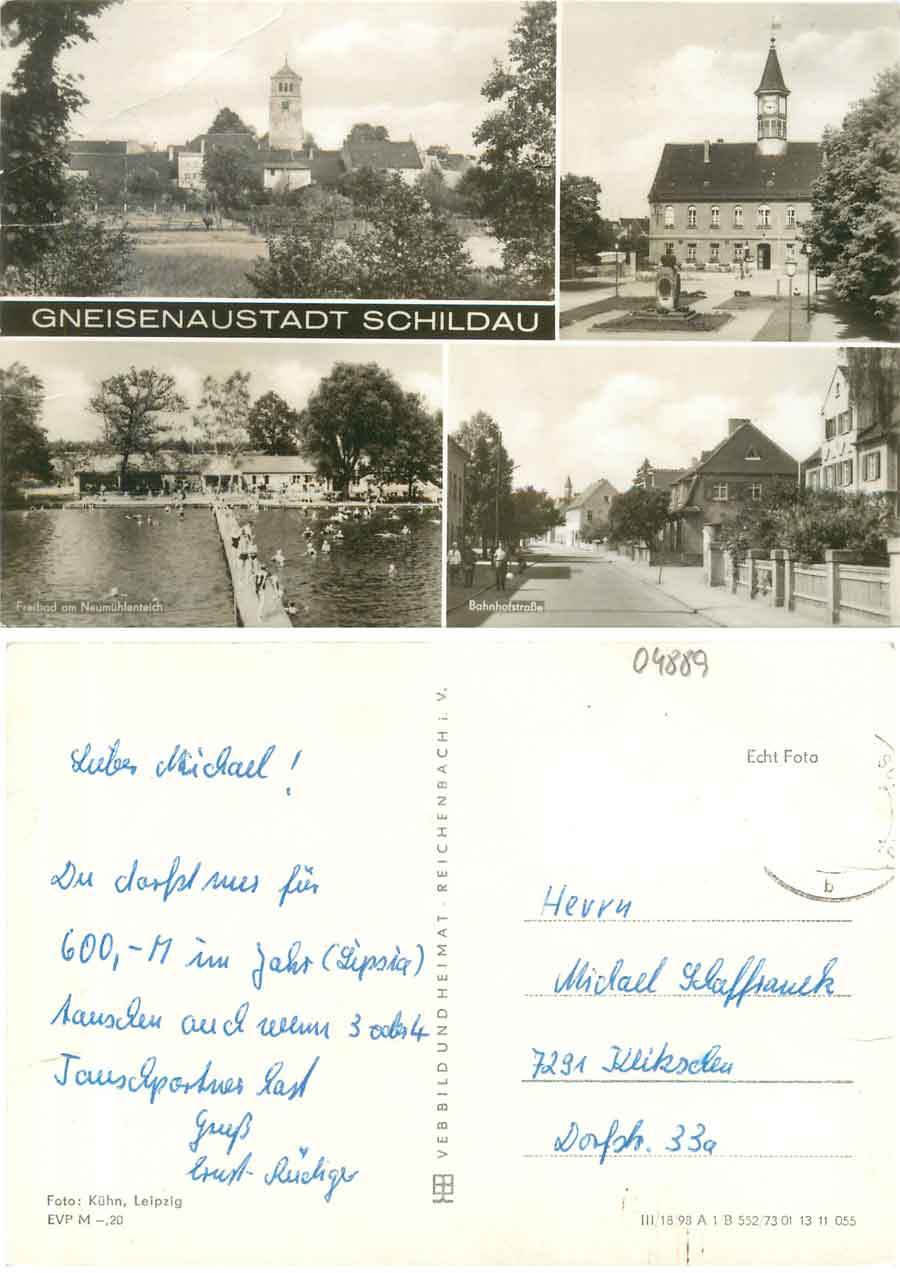 GNEISENAUSTADT SCHILDAU
Freibad am Neumühlenteich
Bahnhofstraße
04889
Lieber Michael!
Du darfst nur für
600,-M im Jahr (Lipsia)
tauschen auch wenn 3 oder 4
Tauschpartner hast
Gruß
Ernst-Rüdiger
Foto: Kühn, Leipzig
EVP M –,20
VEB BILD UND HEIMAT · REICHENBACH i. V.
Echt Foto
b
Herrn
Michael Schaffranek
7291 Klitzschen
Dorfstr. 33a
III/18 98 A 1 B 552/73 01 13 11 055